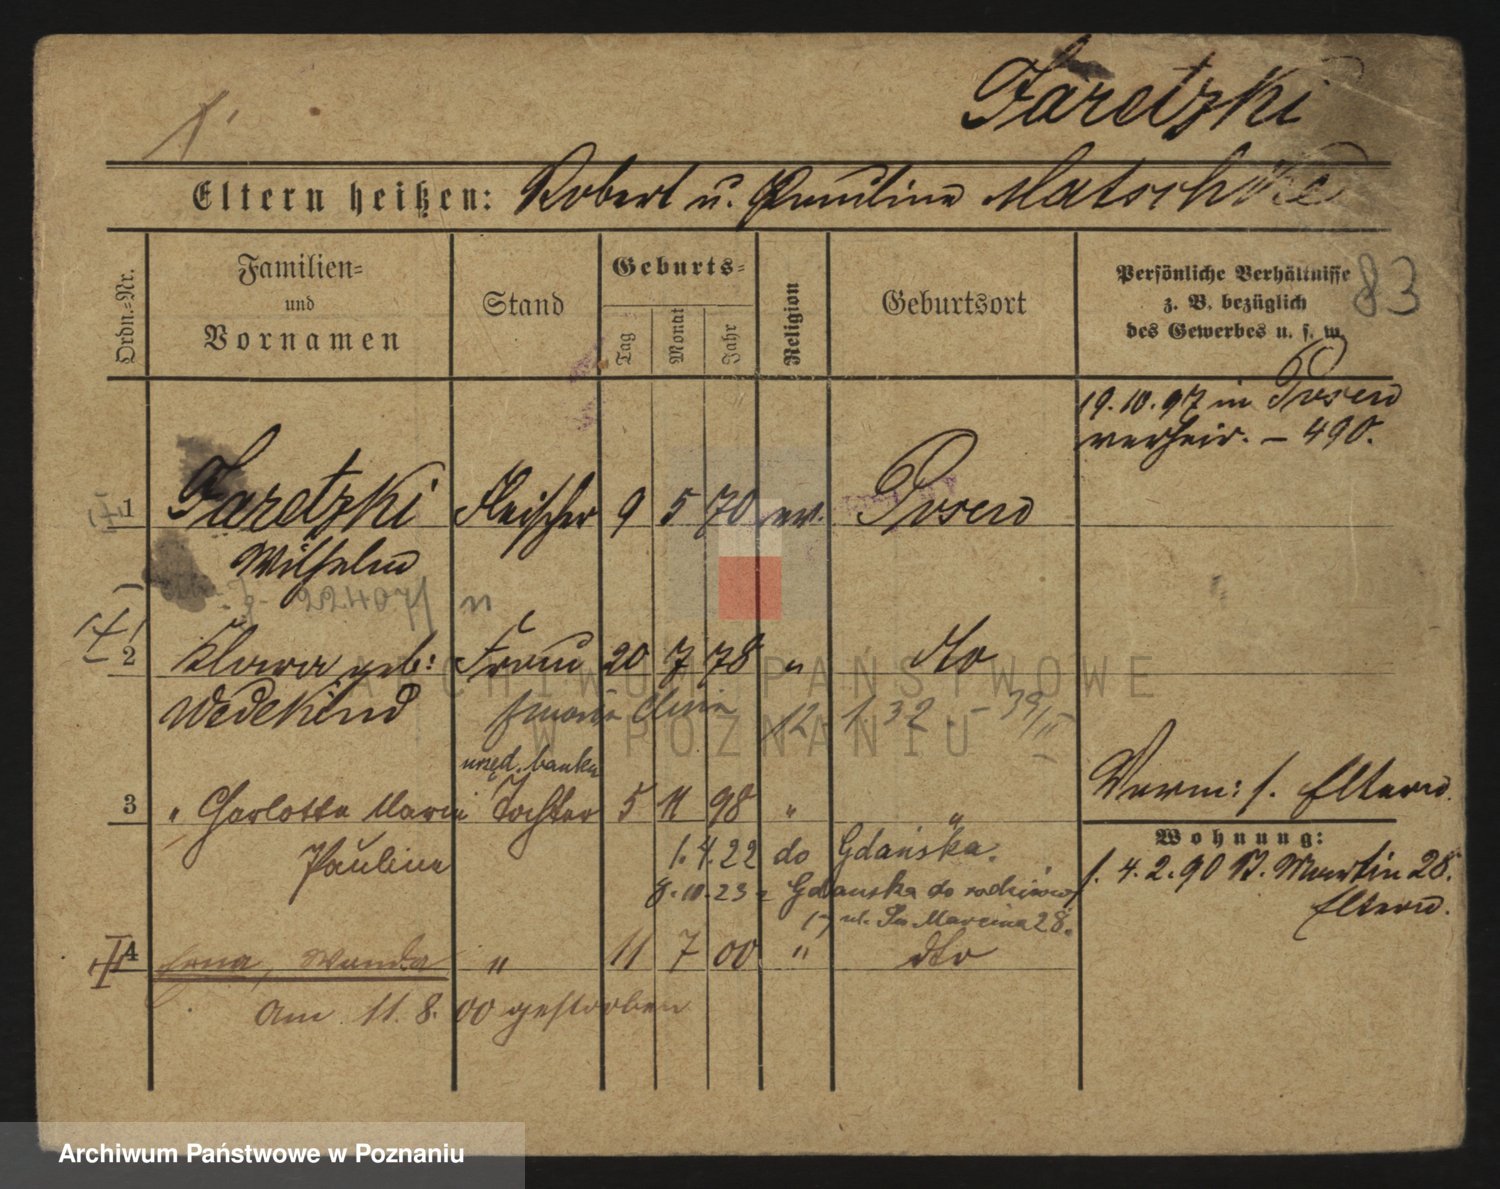 Jaretzki
Eltern heißen: Robert u. Pauline Matschke
Ordn.-Nr.
Familien-
und
Vornamen
Stand
Geburts-
Tag
Monat
Jahr
Religion
Geburtsort
Persönliche Verhältnisse
z. B. bezüglich
des Gewerbes u. s. w.
83
19.10.97 in Posen
verheir. – 490.
1 Jaretzki Fleischer 9 5 70 ev. Posen
Wilhelm
2 Klara geb: Frau 20 7 78 " dto
Wedekind
12 1 32 - 39
urzęd. banku
3 " Charlotte Marie Tochter 5 11 98 " "
Pauline
1.4.22 do Gdańska.
8.10.23 z Gdańska do rodziców
ul. Św Marcina 28.
4 Erna, Wanda " 11 7 00 " dto
Am 11.8.00 gestorben
Verm: s. Eltern.
Wohnung:
1.4.2.90 St. Martin 28.
Eltern.
ARCHIWUM PAŃSTWOWE
W POZNANIU
Archiwum Państwowe w Poznaniu